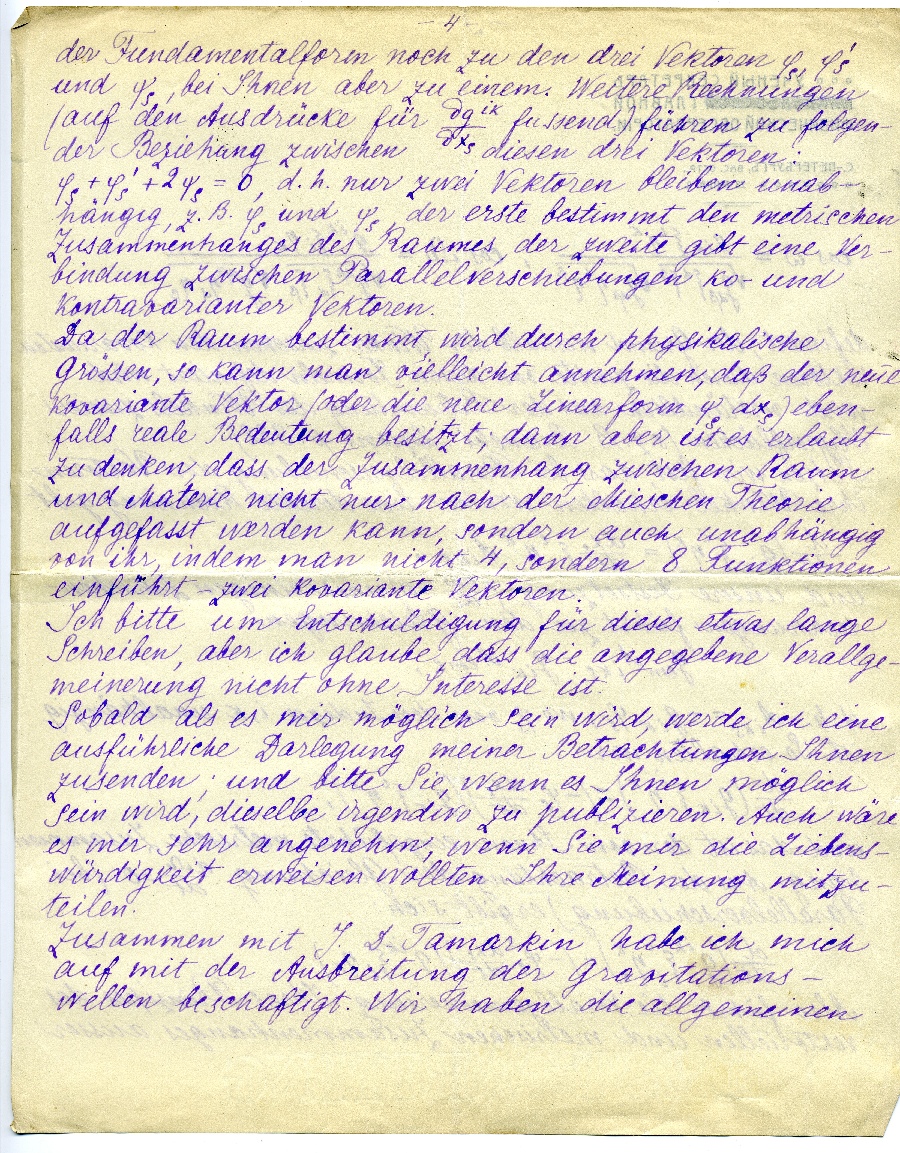 - 4 -
der Fundamentalform noch zu den drei Vektoren φₛ, φ'ₛ
und ψₛ, bei Ihnen aber zu einem. Weitere Rechnungen
(auf den Ausdrücke für ∂gⁱᵏ/∂xₛ fussend) führen zu folgen-
der Beziehung zwischen diesen drei Vektoren:
φₛ + φ'ₛ + 2ψₛ = 0, d.h. nur zwei Vektoren bleiben unab-
hängig, z.B. φₛ und ψₛ, der erste bestimmt den metrischen
Zusammenhanges des Raumes, der zweite gibt eine Ver-
bindung zwischen Parallelverschiebungen ko- und
kontravarianter Vektoren.
Da der Raum bestimmt wird durch physikalische
Grössen, so kann man vielleicht annehmen, daß der neue
kovariante Vektor (oder die neue Linearform ψₛ dxₛ) eben-
falls reale Bedeutung besitzt; dann aber ist es erlaubt
zu denken, dass der Zusammenhang zwischen Raum
und Materie nicht nur nach der Mieschen Theorie
aufgefasst werden kann, sondern auch unabhängig
von ihr, indem man nicht 4, sondern 8 Funktionen
einführt - zwei kovariante Vektoren.
Ich bitte um Entschuldigung für dieses etwas lange
Schreiben, aber ich glaube, dass die angegebene Verallge-
meinerung nicht ohne Interesse ist.
Sobald als es mir möglich sein wird, werde ich eine
ausführliche Darlegung meiner Betrachtungen Ihnen
zusenden; und bitte Sie, wenn es Ihnen möglich
sein wird, dieselbe irgendwo zu publizieren. Auch wäre
es mir sehr angenehm, wenn Sie mir die Liebens-
würdigkeit erweisen wollten Ihre Meinung mitzu-
teilen.
Zusammen mit J. D. Tamarkin habe ich mich
auf mit der Ausbreitung der Gravitations-
wellen beschäftigt. Wir haben die allgemeinen